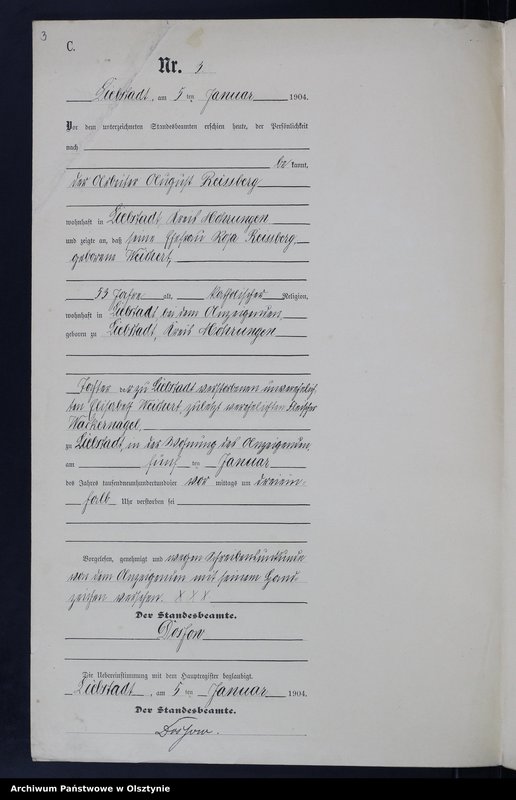 3
C.
Nr. 3
Liebstadt, am 5 ten Januar 1904.
Vor dem unterzeichneten Standesbeamten erschien heute, der Persönlichkeit
nach
be kannt,
der Arbeiter August Reissberg
wohnhaft in Liebstadt, Kreis Mohrungen
und zeigte an, daß seine Ehefrau Rosa Reissberg,
geborene Weichert,
53 Jahre alt, katholischer Religion,
wohnhaft in Liebstadt bei dem Anzeigenden,
geboren zu Liebstadt, Kreis Mohrungen
Tochter der zu Liebstadt verstorbenen unverehelich-
ten Elisabeth Weichert, zuletzt verehelichten Fleischer
Wackernagel,
zu Liebstadt, in der Wohnung des Anzeigenden,
am fünf ten Januar
des Jahres tausendneunhundertundvier vor mittags um dreiein-
halb Uhr verstorben sei
Vorgelesen, genehmigt und wegen Schreibensunkunde
von dem Anzeigenden mit seinem Hand-
zeichen versehen. X X X
Der Standesbeamte.
Die Uebereinstimmung mit dem Hauptregister beglaubigt.
Liebstadt, am 5 ten Januar 1904.
Der Standesbeamte.
Archiwum Państwowe w Olsztynie